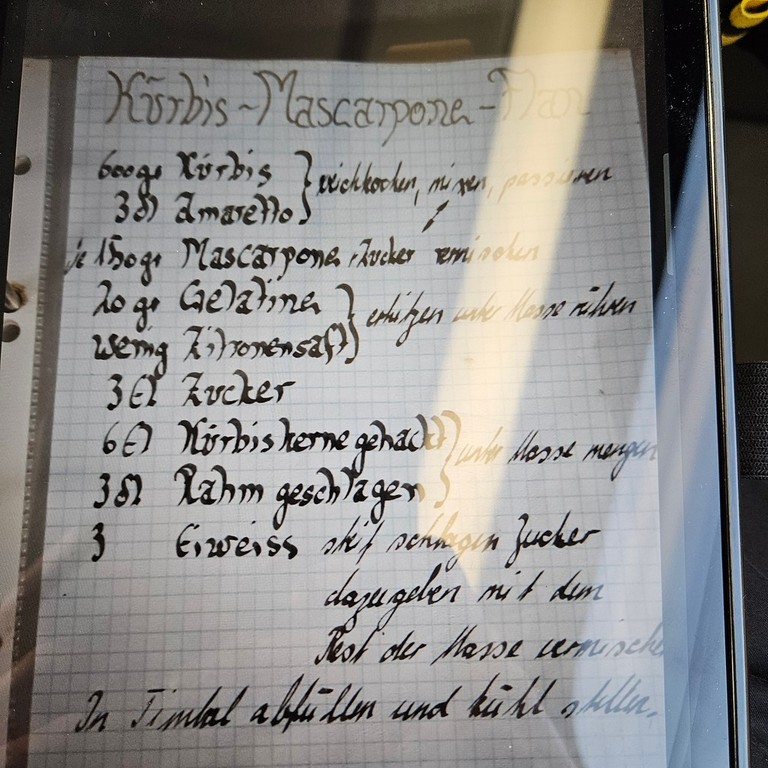 Kürbis-Mascarpone-Flan
600gr Kürbis } weichkochen, mixen, passieren
3dl Amaretto
je 150gr Mascarpone, Zucker vermischen
20gr Gelatine } erhitzen unter Masse rühren
wenig Zitronensaft
3El Zucker
6El Kürbiskerne gehackt } unter Masse mengen
3dl Rahm geschlagen
3 Eiweiss steif schlagen Zucker
dazugeben mit dem
Rest der Masse vermischen
In Timbal abfüllen und kühl stellen.